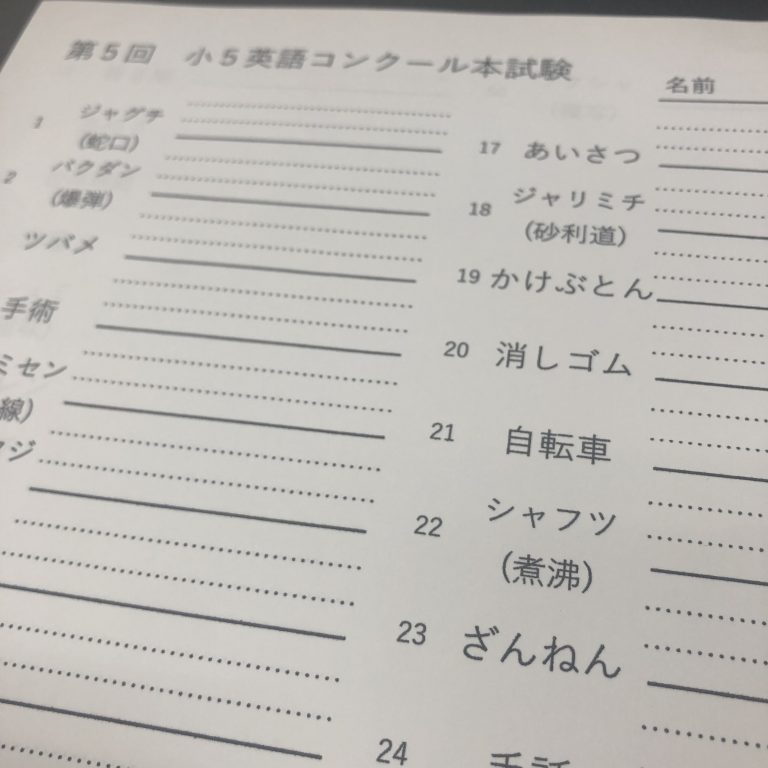 第5回 小5英語コンクール本試験
名前
1 ジャグチ
(蛇口)
2 バクダン
(爆弾)
ツバメ
手術
ミセン
線)
17 あいさつ
18 ジャリミチ
(砂利道)
19 かけぶとん
20 消しゴム
21 自転車
22 シャフツ
(煮沸)
23 ざんねん
24